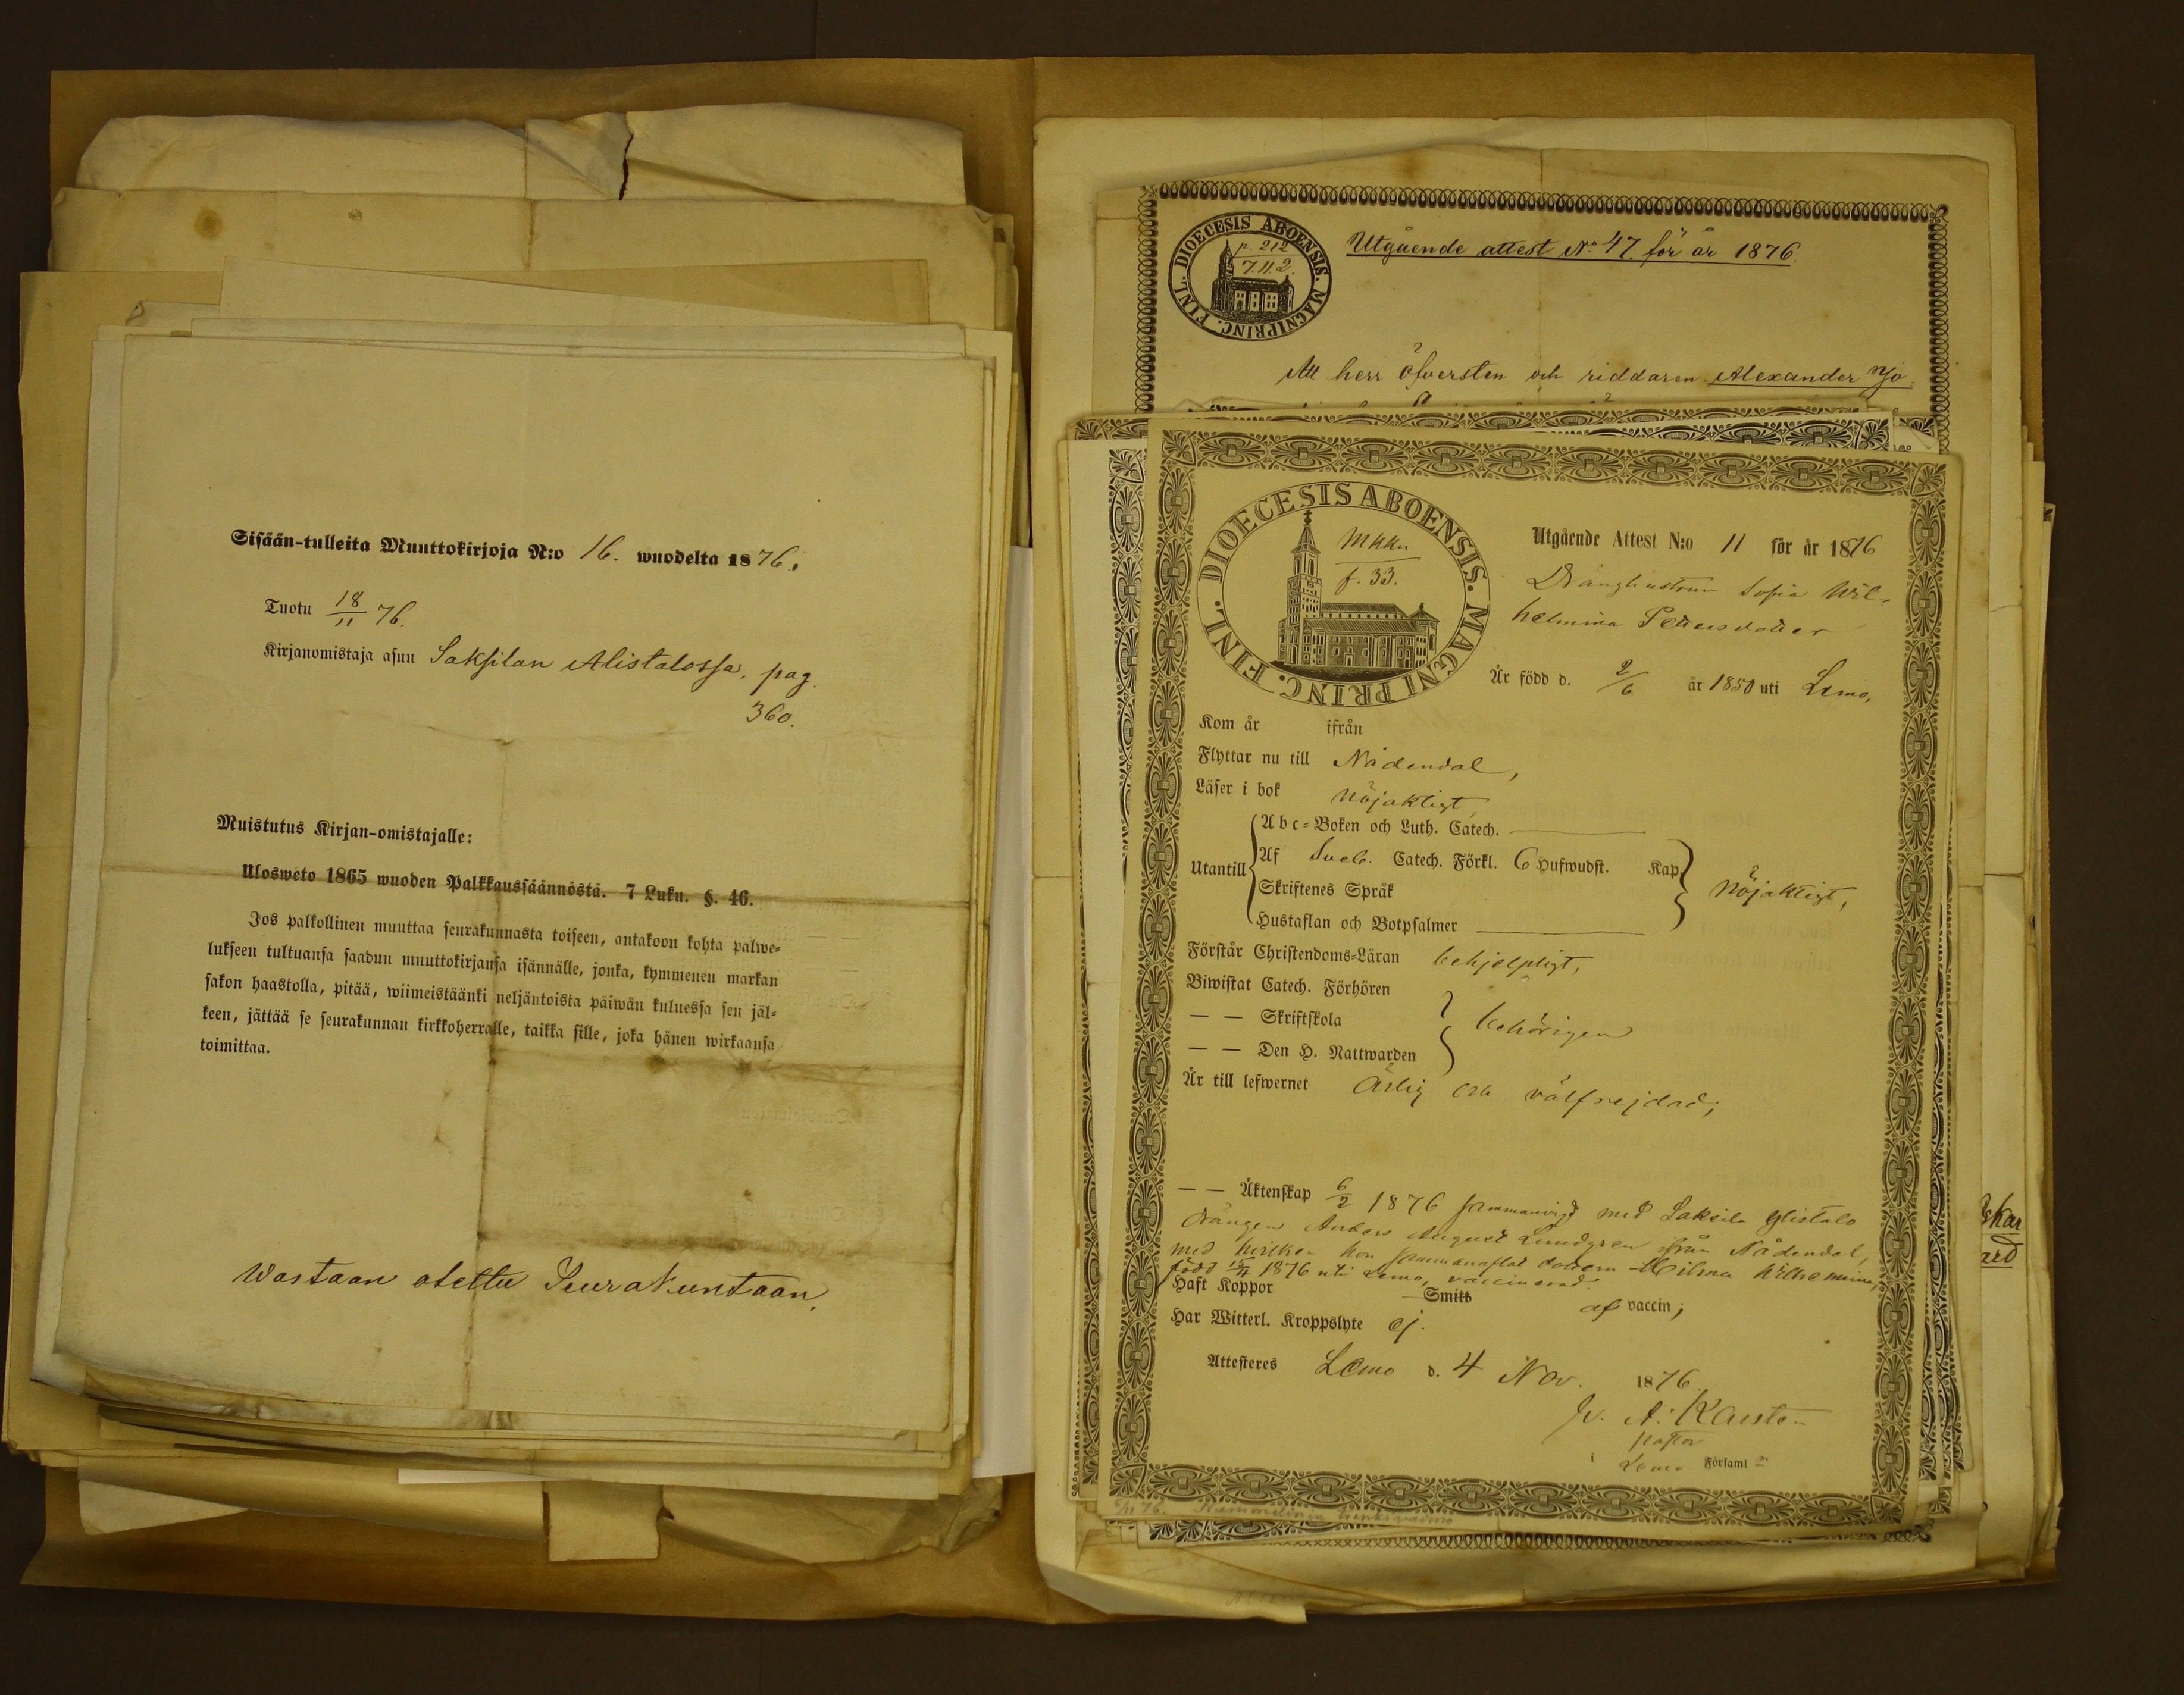 Sisään-tulleita Muuttokirjoja N:o 16. wuodelta 1876.
Tuotu 18/11 76.
Kirjanomistaja asuu Saksilan Alistalossa, pag.
360.
Muistutus Kirjan-omistajalle:
Ulosweto 1865 wuoden Palkkaussäännöstä. 7 Luku. §. 46.
Jos palkollinen muuttaa seurakunnasta toiseen, antakoon kohta palwe-
lukseen tultuansa saadun muuttokirjansa isännälle, jonka, kymmenen markan
sakon haastolla, pitää, wiimeistäänki neljäntoista päiwän kuluessa sen jäl-
keen, jättää se seurakunnan kirkkoherralle, taikka sille, joka hänen wirkaansa
toimittaa.
Wastaan otettu Seurakuntaan.
FINL. DIOECESIS ABOENSIS. MAGNIPRINC.
p. 212
7.11.2.
Utgående attest No 47. för år 1876.
Att herr Öfversten och riddaren Alexander
FINL. DIOECESIS ABOENSIS. MAGNI PRINC.
f. 33.
Utgående Attest N:o 11 för år 1876
Dränghustrun Sofia Wil-
helmina Pettersdotter
Är född d. 2/6 år 1850 uti Lemo,
Kom år ifrån
Flyttar nu till Nådendal,
Läser i bok nöjaktigt
Utantill
Abc-Boken och Luth. Catech.
Af Sveb. Catech. Förkl. 6 Hufwudst. Kap
Skriftenes Språk
nöjaktigt,
Hustaflan och Botpsalmer
Förstår Christendoms-Läran behjelpligt,
Biwistat Catech. Förhören
— — Skriftskola
behörigen
— — Den H. Nattwarden
Är till lefwernet Ärlig och välfrejdad;
— — Äktenskap 6/2 1876 sammanvigd med Saksila Alistalo
drängen Anders August Lundgren från Nådendal,
med hvilken hon sammanaflat dottern Hilma Wilhelmina,
född 1876 uti Lemo, vaccinerad.
Haft Koppor Smitt af vaccin;
Har Witterl. Kroppslyte ej.
Attesteres Lemo d. 4 Nov. 1876.
A. Karsten
pastor
Lemo Församl